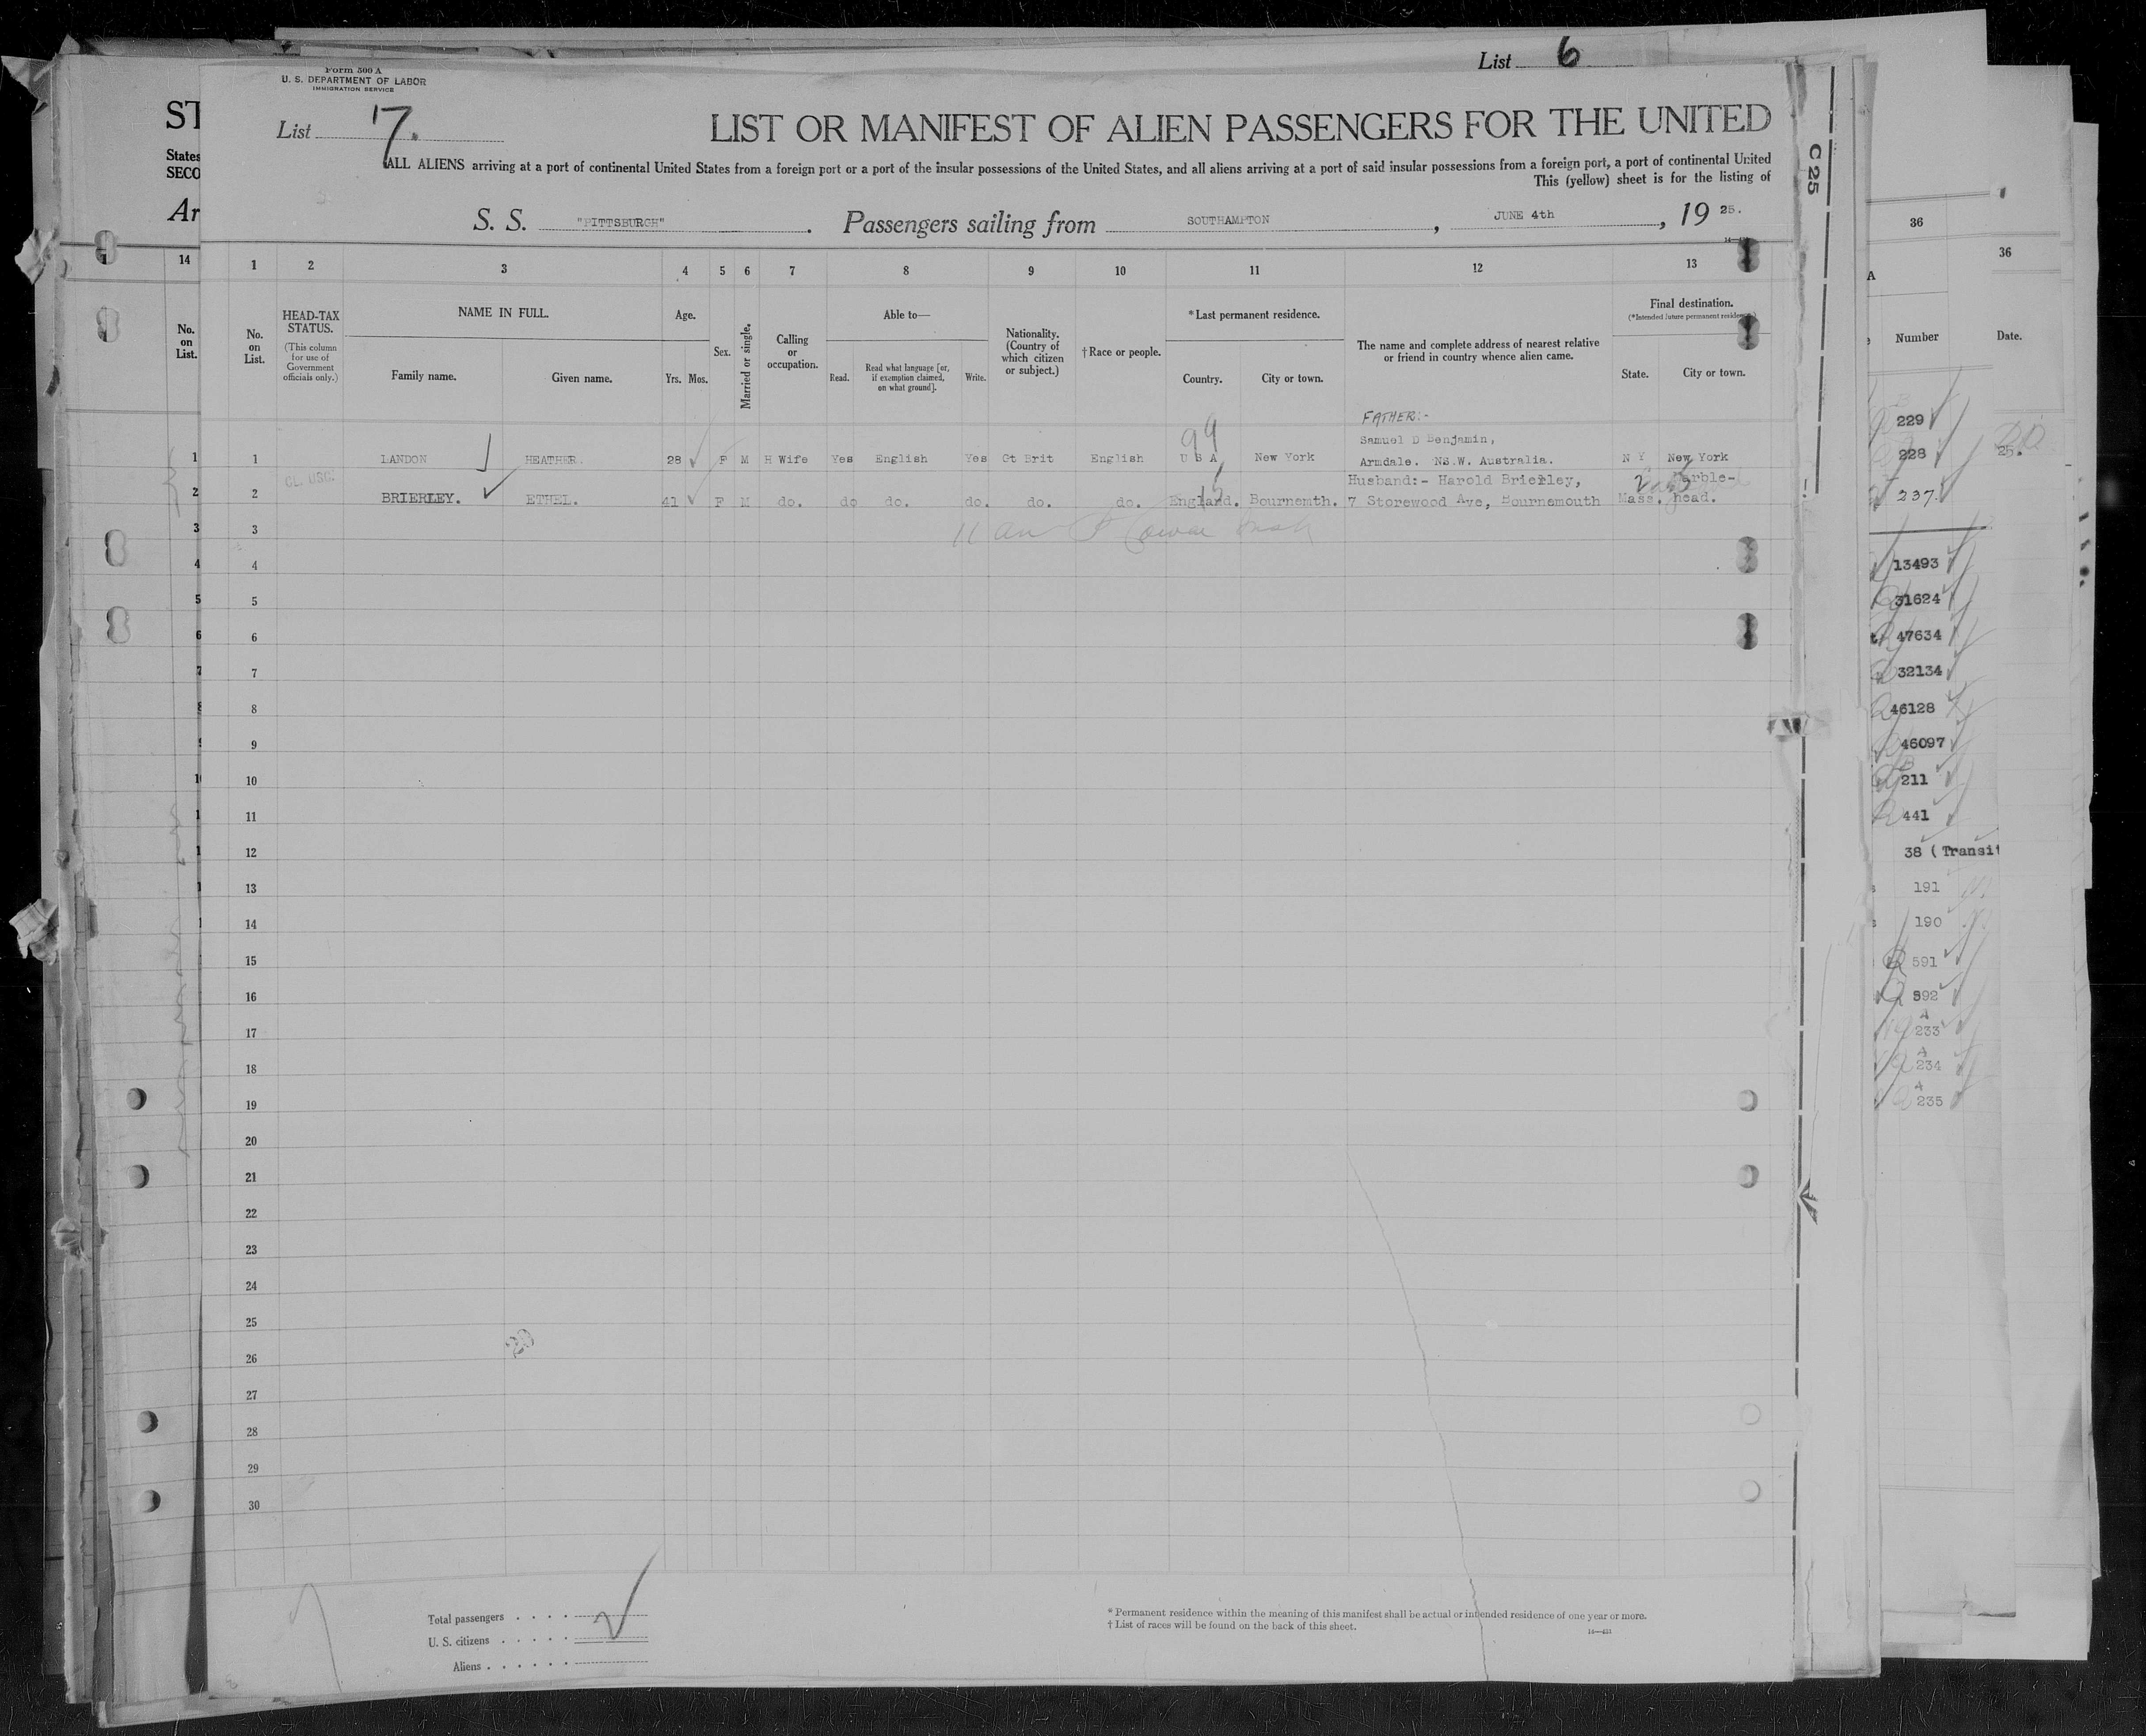 List 6
Form 500 A
U. S. DEPARTMENT OF LABOR
IMMIGRATION SERVICE
List 17.
LIST OR MANIFEST OF ALIEN PASSENGERS FOR THE UNITED
ALL ALIENS arriving at a port of continental United States from a foreign port or a port of the insular possessions of the United States, and all aliens arriving at a port of said insular possessions from a foreign port, a port of continental United
This (yellow) sheet is for the listing of
S. S. "PITTSBURGH". Passengers sailing from SOUTHAMPTON, JUNE 4th, 19 25.
ST
States
SECO
Ar
C 25
14 1 2 3 4 5 6 7 8 9 10 11 12 13 36 36
No. on List.
No. on List.
HEAD-TAX STATUS.
(This column for use of Government officials only.)
NAME IN FULL.
Family name. Given name.
Age.
Yrs. Mos.
Sex.
Married or single.
Calling or occupation.
Able to—
Read. Read what language [or, if exemption claimed, on what ground]. Write.
Nationality. (Country of which citizen or subject.)
† Race or people.
* Last permanent residence.
Country. City or town.
The name and complete address of nearest relative or friend in country whence alien came.
Final destination.
(*Intended future permanent residence.)
State. City or town.
Number
Date.
FATHER:-
99 Samuel D Benjamin,
1 1 LANDON HEATHER. 28 F M H Wife Yes English Yes Gt Brit English U S A New York Armdale. NS.W. Australia. N Y New York
CL. USC.
15 Husband:- Harold Brierley, Marble-
2 2 BRIERLEY. ETHEL. 41 F M do. do do. do. do. do. England. Bournemth. 7 Storewood Ave, Bournemouth Mass. head.
3 3
4 4
5 5
6 6
7 7
8 8
9
10
11
12
13
14
15
16
17
18
19
20
21
22
23
24
25
26
27
28
29
30
229
228 25.
237.
13493
31624
47634
32134
46128
46097
211
441
38 (Transit
191
190
591
592
A
233
A
234
A
235
Total passengers
U. S. citizens
Aliens
* Permanent residence within the meaning of this manifest shall be actual or intended residence of one year or more.
† List of races will be found on the back of this sheet.